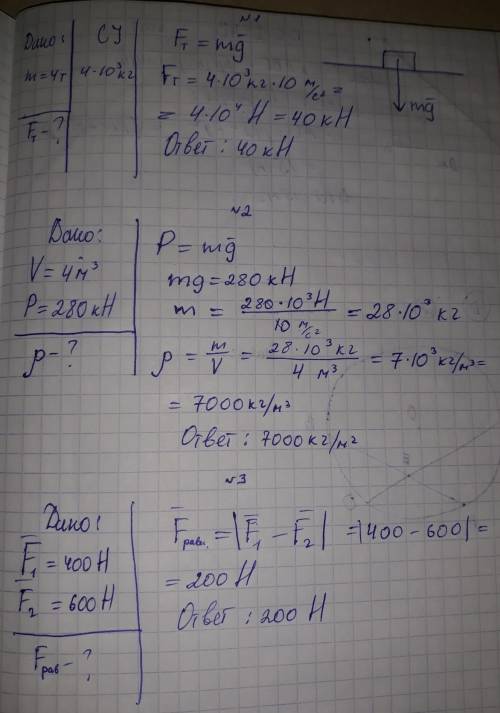 №1
Дано: СИ
m=4т 4·10³кг
Fт - ?
Fт = mg̅
Fт = 4·10³кг·10 м/с² =
= 4·10⁴ Н = 40кН
Ответ: 40 кН
mg̅
№2
Дано:
V=4м³
P=280кН
ρ - ?
P=mg̅
mg=280кН
m = 280·10³Н / 10 м/с² = 28·10³ кг
ρ = m/V = 28·10³ кг / 4 м³ = 7·10³ кг/м³ =
= 7000кг/м³
Ответ: 7000кг/м²
№3
Дано:
F̅₁ = 400Н
F̅₂ = 600Н
Fрав - ?
F̅равн. = |F̅₁ - F̅₂| = |400 - 600| =
= 200 Н
Ответ: 200 Н